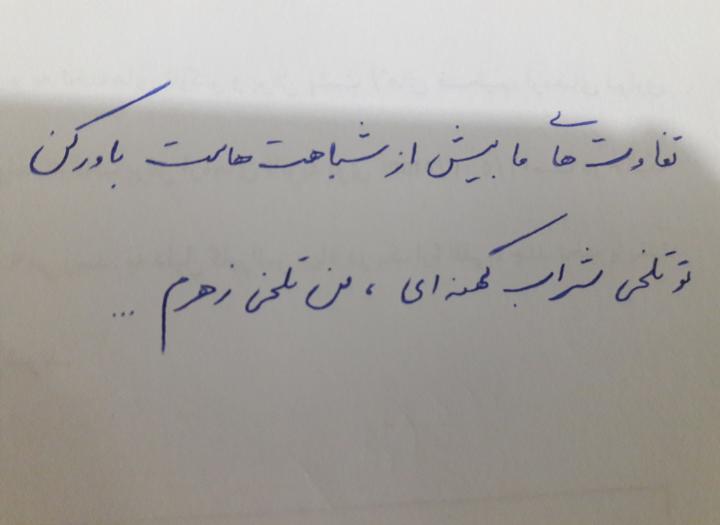 تفاوت‌های ما بیش از شباهت هاست باور کن
تو تلخی شراب کهنه ای ، من تلخی زهرم ...